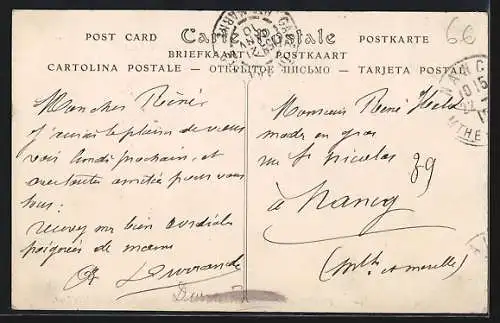 66
POST CARD Carte Postale POSTKARTE
BRIEFKAART POSTKAART
CARTOLINA POSTALE – ОТКРЫТОЕ ПИСЬМО – TARJETA POSTAL
NANCY
Mon cher Réné
J'aurai le plaisir de vous
voir lundi prochain, et
avec toutes amitié pour vous
tous.
recevez ma bien cordiale
poignées de mains
Durand
Monsieur René
mode en gros
rue St nicolas 39
à Nancy
(Mthe et moselle)